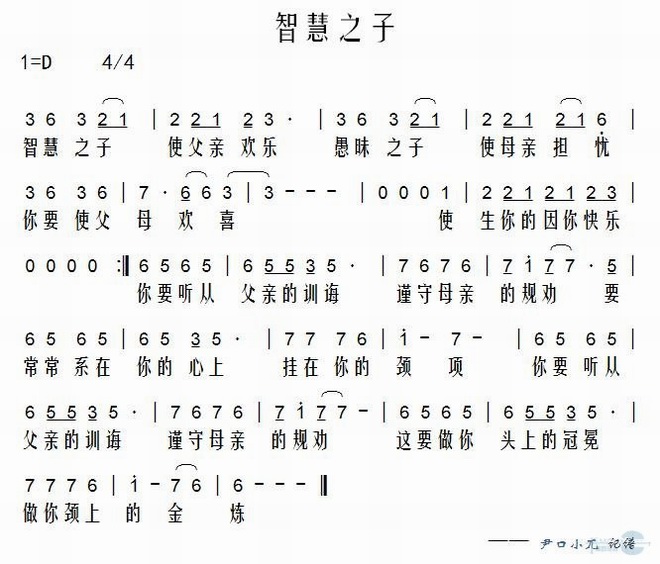 智慧之子
1=D 4/4
3 6 3 2 1 | 2 2 1 2 3 · | 3 6 3 2 1 | 2 2 1 2 1 6 |
智慧 之子 使父亲 欢乐 愚昧 之子 使母亲 担 忧
3 6 3 6 | 7 · 6 6 3 | 3 - - - | 0 0 0 1 | 2 2 1 2 1 2 3 |
你要 使父 母 欢 喜 使 生你的因你快乐
0 0 0 0 :‖ 6 5 6 5 | 6 5 5 3 5 · | 7 6 7 6 | 7 i 7 7 · 5 |
你要听从 父亲的训诲 谨守母亲 的规劝 要
6 5 6 5 | 6 5 3 5 · | 7 7 7 6 | i - 7 - | 6 5 6 5 |
常常 系在 你的 心上 挂在 你的 颈 项 你要 听从
6 5 5 3 5 · | 7 6 7 6 | 7 i 7 7 - | 6 5 6 5 | 6 5 5 3 5 · |
父亲的训诲 谨守母亲 的规劝 这要做你 头上的冠冕
7 7 7 6 | i - 7 6 | 6 - - - ‖
做你颈上 的 金 炼
—— 尹口小兀 记谱